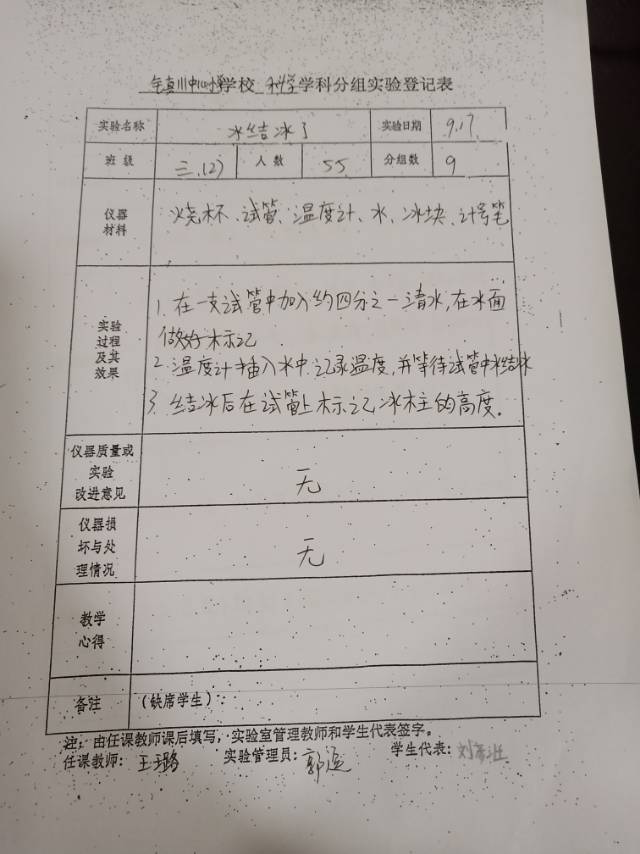 中心小学学校 科学学科分组实验登记表
实验名称 水结冰了 实验日期 9.17
班级 三.(2) 人数 55 分组数 9
仪器
材料
烧杯、试管、温度计、水、冰块、记号笔
实验
过程
及其
效果
1. 在一支试管中加入约四分之一清水,在水面
做好标记
2. 温度计插入水中.记录温度,并等待试管中水结冰
3. 结冰后在试管上标记冰柱的高度.
仪器质量或
实验
改进意见
无
仪器损
坏与处
理情况
无
教学
心得
备注 (缺席学生):
注:由任课教师课后填写,实验室管理教师和学生代表签字。
任课教师: 王璐 实验管理员: 郭 学生代表: 刘